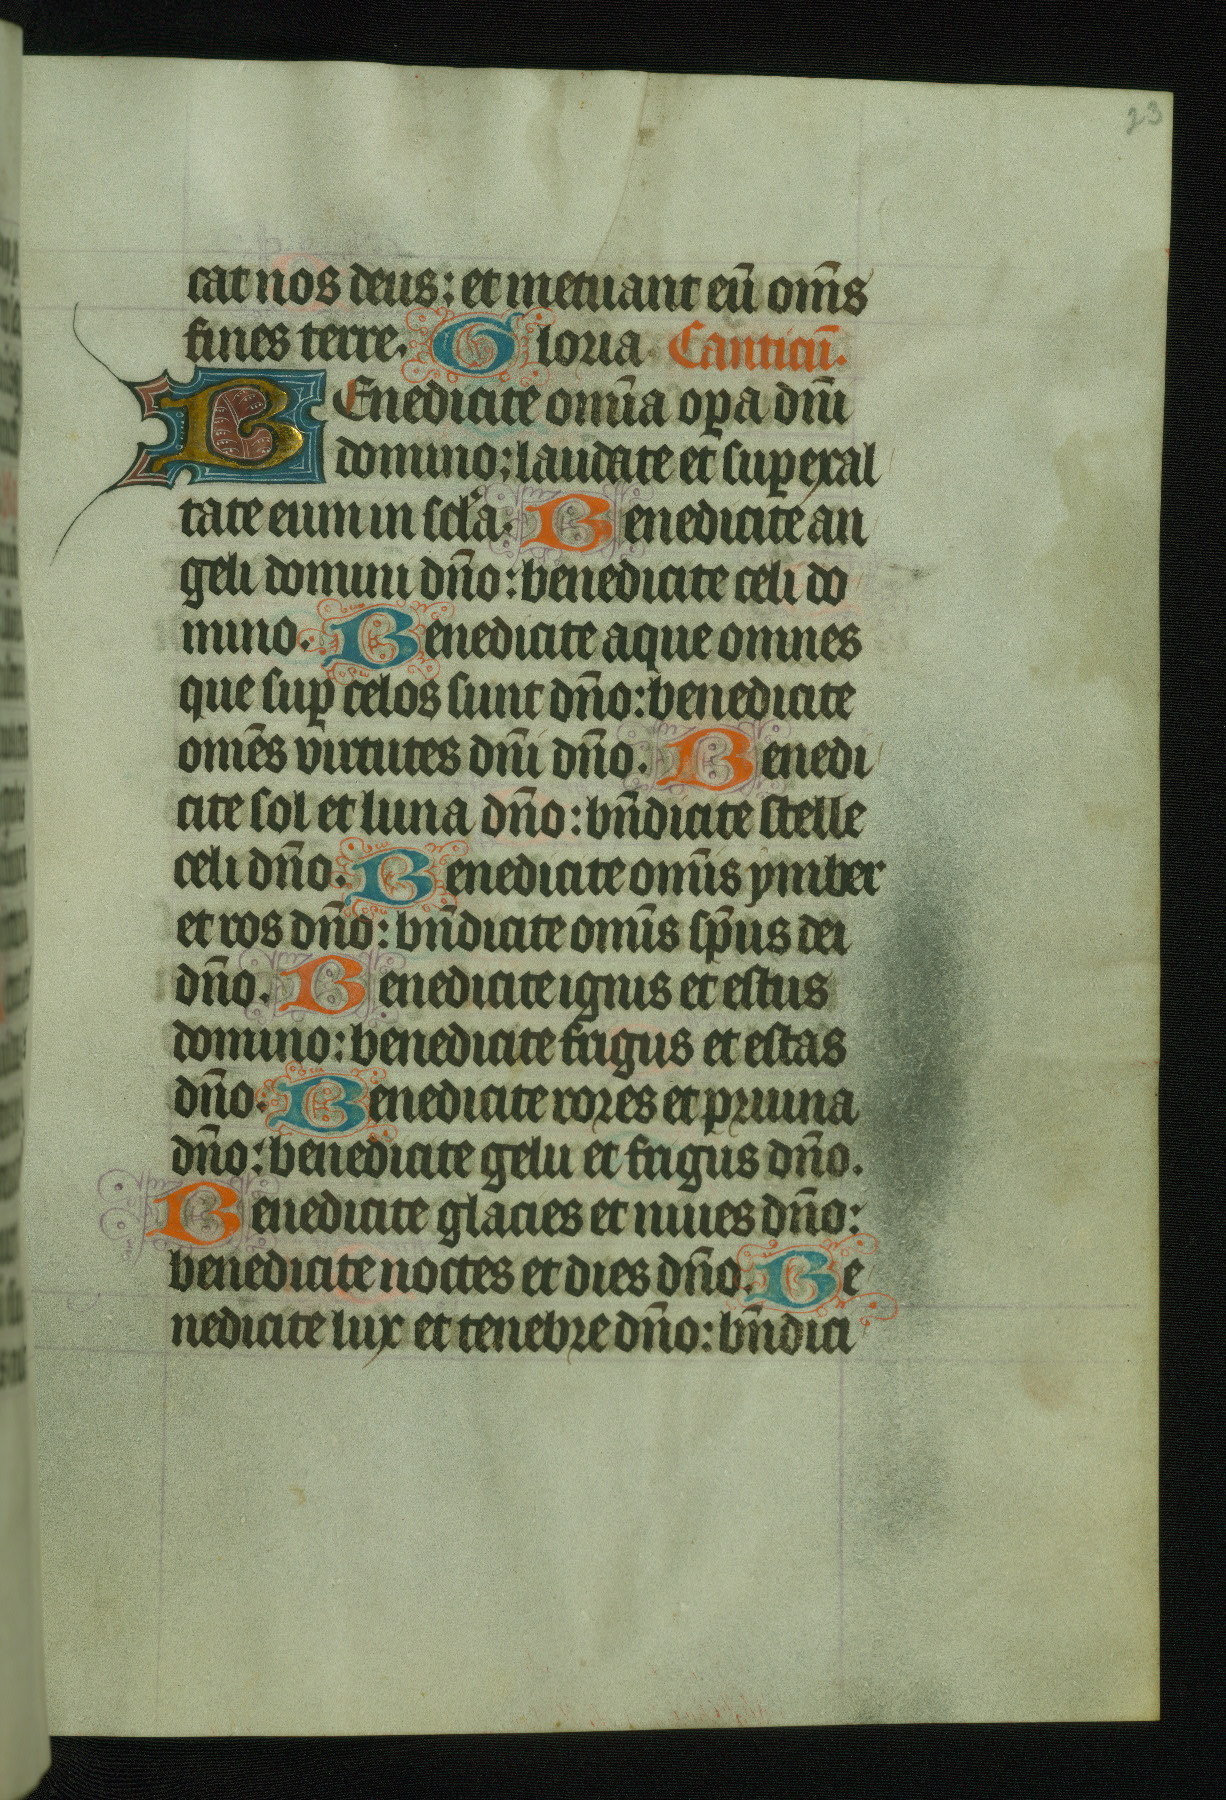 23
cat nos deus: et metuant eū om̄s
fines terre. Gloria Canticū.
BEnedicite om̄ia opa dn̄i
domino: laudate et supexal
tate eum in scl̓a. Benedicite an
geli domini dn̄o: benedicite celi do
mino. Benedicite aque omnes
que sup celos sunt dn̄o: benedicite
om̄es virtutes dn̄i dn̄o. Benedi
cite sol et luna dn̄o: bn̄dicite stelle
celi dn̄o. Benedicite omīs ymber
et ros dn̄o: bn̄dicite omīs sp̄us dei
dn̄o. Benedicite ignis et estus
domino: benedicite frigus et estas
dn̄o. Benedicite rores et pruina
dn̄o: benedicite gelu et frigus dn̄o.
Benedicite glacies et niues dn̄o:
benedicite noctes et dies dn̄o. Be
nedicite lux et tenebre dn̄o: bn̄dici